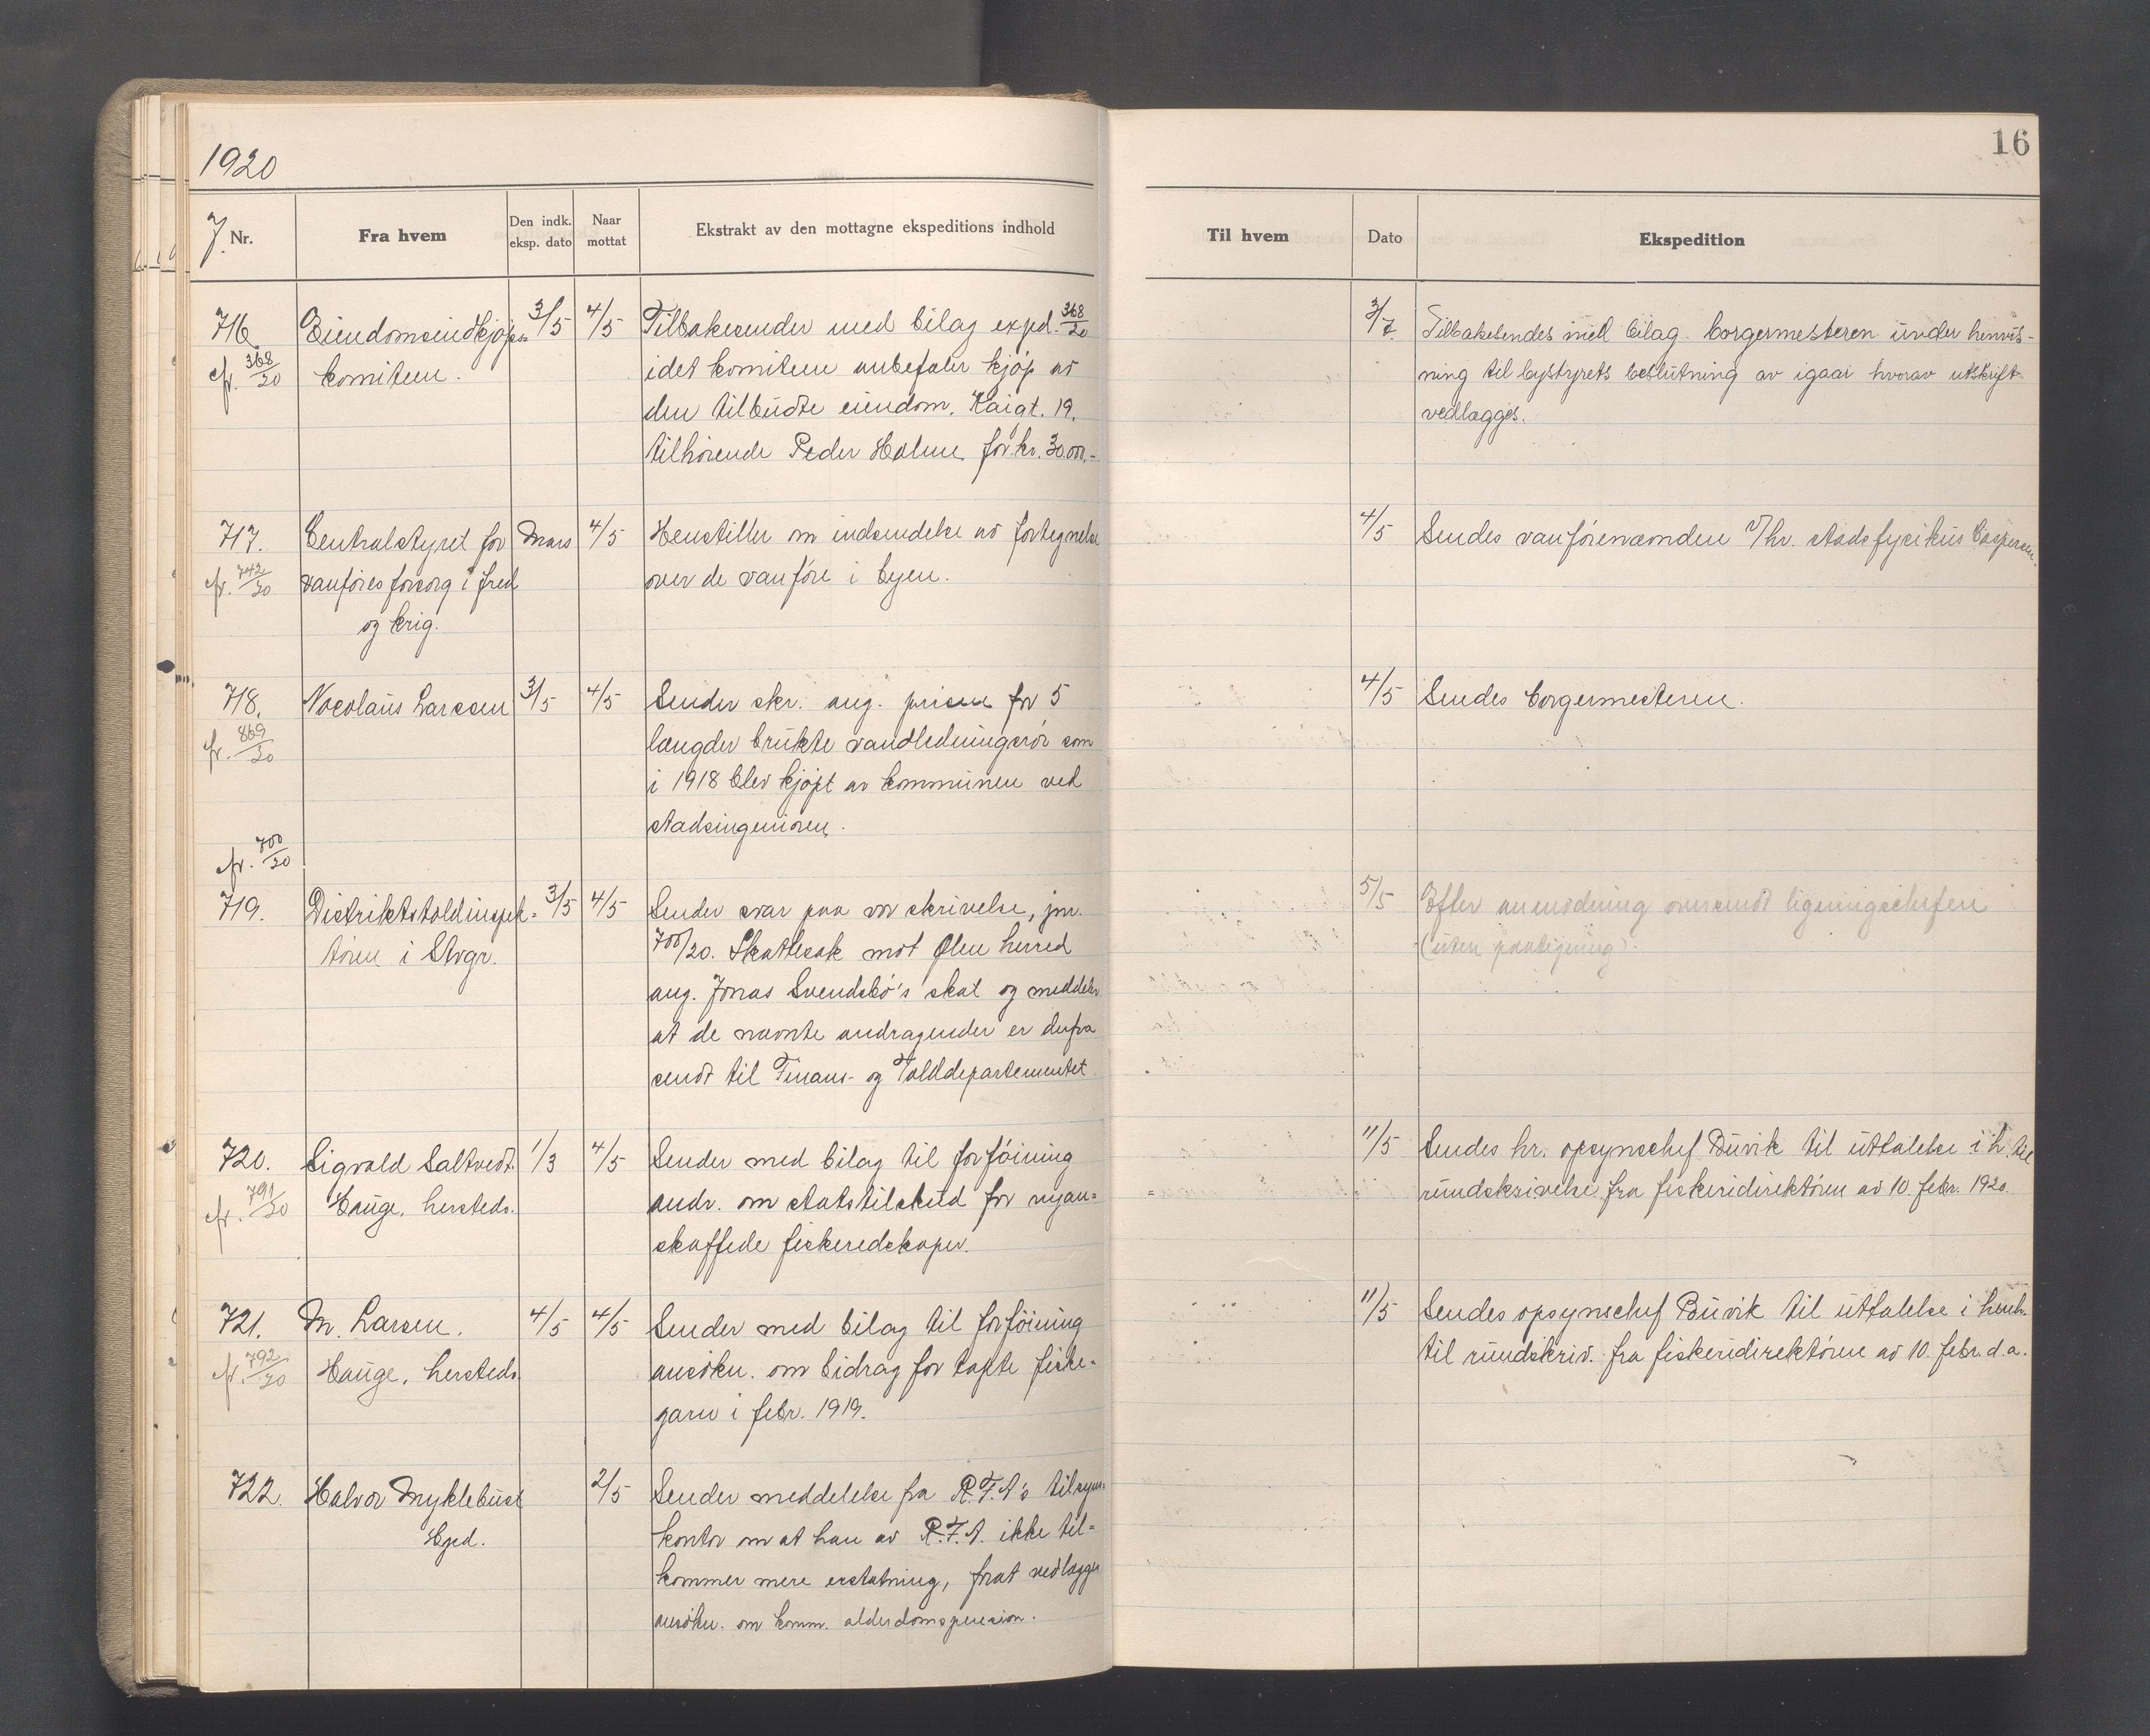 1920
16
J. Nr.
Fra hvem
Den indk. eksp. dato
Naar mottat
Ekstrakt av den mottagne ekspeditions indhold
Til hvem
Dato
Ekspedition
716. cfr. 368/20
Eiendomsindkjøps=
komiteen.
3/5
4/5
Tilbakesender med bilag exped. 368/20
idet komiteen anbefaler kjøp av
den tilbudte eiendom, Kaigt. 19,
tilhørende Peder Holme for kr. 30.000,-
3/7.
Tilbakesendes med bilag borgermesteren under henvis-
ning til bystyrets beslutning av igaar hvorav utskrift
vedlægges.
717. cfr. 742/20
Centralstyret for
vanføres forsorg i fred
og krig.
Mars
4/5
Henstiller om indsendelse av fortegnelse
over de vanføre i byen.
4/5
Sendes vanførenevnden v/ hr. stadsfysikus Caspersen.
718. cfr. 869/20
Nocolaus Larssen
3/5
4/5
Sender skr. ang. prisen for 5
længder brukte vandledningsrør som
i 1918 blev kjøpt av kommunen ved
stadsingeniøren.
4/5
Sendes borgermesteren.
cfr. 700/20
719.
Distriktstoldinspek=
tøren i Stvgr.
3/5
4/5
Sender svar paa vor skrivelse, jnr.
700/20. Skattesak mot Ølen herred
ang. Jonas Svendsbø's skat og meddeler
at de nævnte andragender er derfra
sendt til Finans- og Tolddepartementet.
5/5
Efter anmodning oversendt ligningschefen
(uten paategning).
720. cfr. 791/20
Sigvald Saltvedt.
Hauge, hersteds.
1/3
4/5
Sender med bilag til forføining
andr. om statstilskud for nyan=
skaffede fiskeredskaper.
11/5
Sendes hr. opsynschef Buvik til uttalelse i h. til
rundskrivelse fra fiskeridirektøren av 10. febr. 1920.
721. cfr. 792/20
M. Larsen.
Hauge, hersteds.
4/5
4/5
Sender med bilag til forføining
ansøkn. om bidrag for tapte fiske=
garn i febr. 1919.
11/5
Sendes opsynschef Buvik til uttalelse i henh.
til rundskriv. fra fiskeridirektøren av 10. febr. d.a.
722.
Halvor Myklebust
Hgsd.
2/5
Sender meddelelse fra R.F.A's tilsyns=
kontor om at han av R.F.A. ikke til=
kommer mere erstatning, forat vedlægges
ansøkn. om komm. alderdomspension.